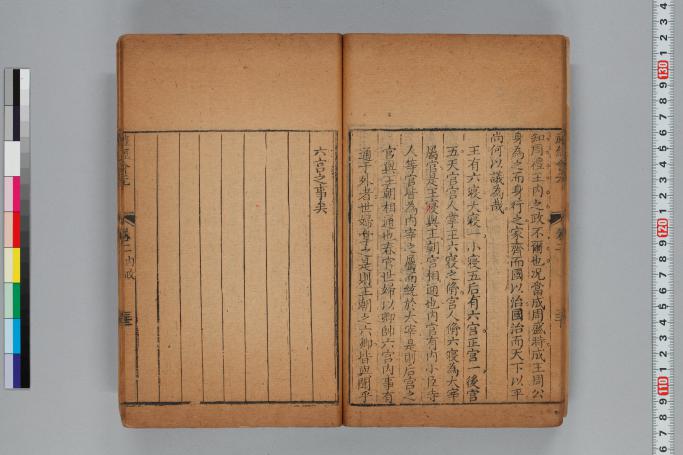 知周禮王内之政不爾也况當成周盛時成王周公
身為之而身行之家齊而國以治國治而天下以平
尚何以議為哉
王有六寝大寝一小寝五后有六宫正宫一後宫
五天官宫人掌王六寝之脩宫人脩六寝為大宰
屬官是王寝與王朝宫相通也内官有内小臣寺
人等官皆為内宰之屬而統於大宰是則后宫之
官與王朝相通也春官世婦以卿帥六宫内事有
通于外者世婦掌之是則王朝之六卿皆與聞乎
六宫之事矣
卷二内政